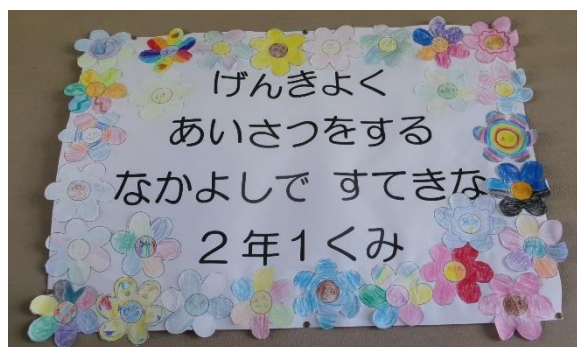 げんきよく
あいさつをする
なかよしで すてきな
2年1くみ